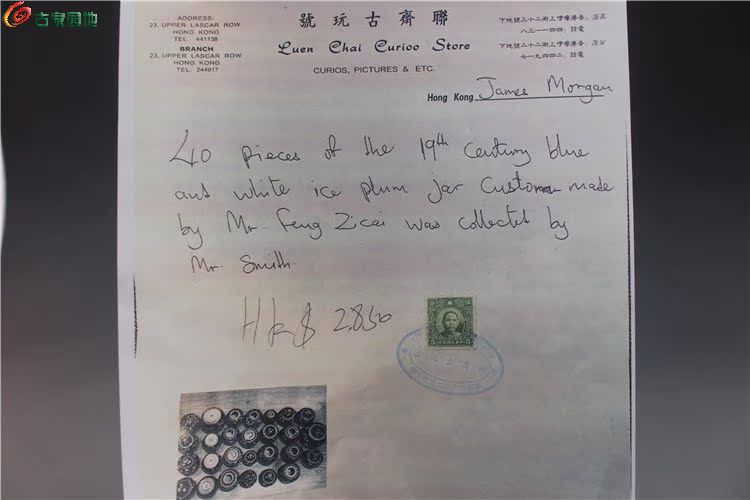 古泉园地
ADDRESS:
23, UPPER LASCAR ROW
HONG KONG
TEL. 441138
BRANCH
23, UPPER LASCAR ROW
HONG KONG
TEL. 244917
號玩古齋聯
Luen Chai Curioo Store
CURIOS, PICTURES & ETC.
下地號三十三街上嚤囉港香:店正
八三一一四四:話電
下地號二十二街上嚤囉港香:店分
七一九四四二:話電
Hong Kong James Morgan
40 pieces of the 19th Century blue
and white ice plum jar Custom made
by Mr. Feng Zicai was collected by
Mr. Smith.
HK$ 2850
5 5